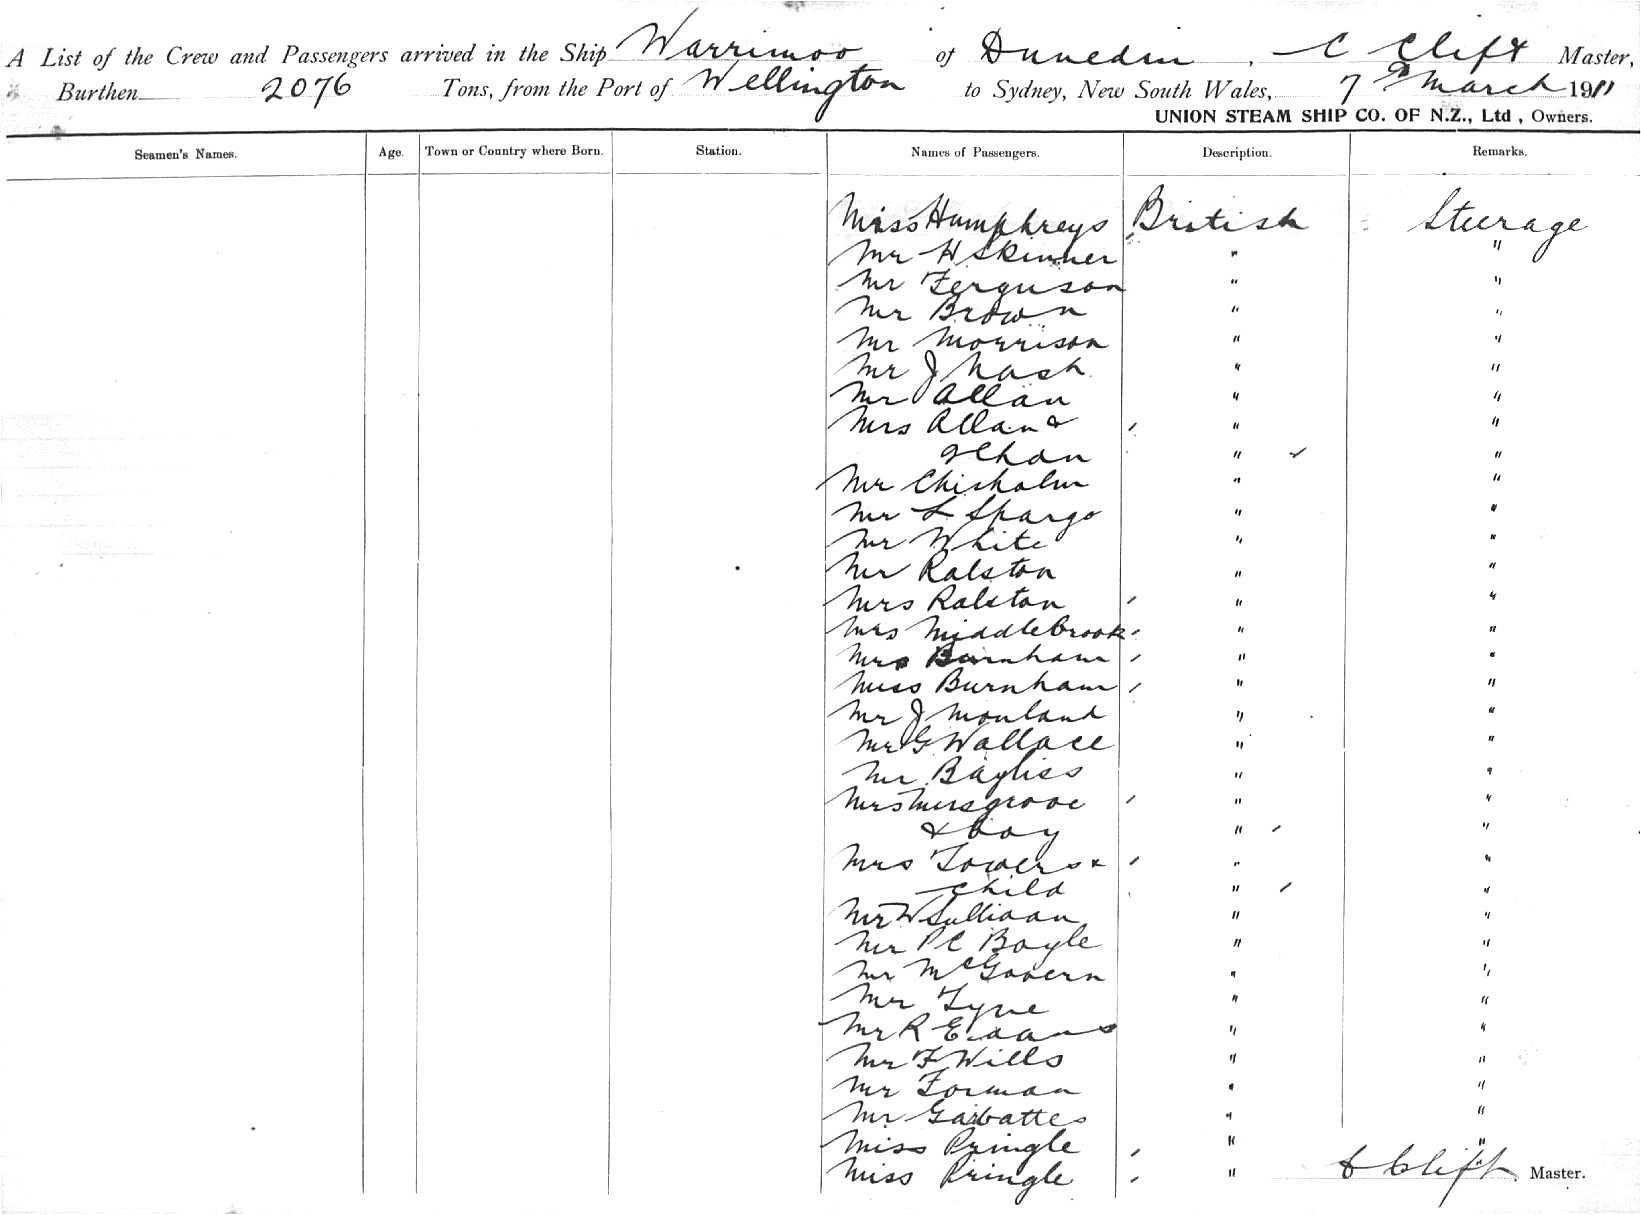 A List of the Crew and Passengers arrived in the Ship Warrimoo of Dunedin, C Clift Master,
Burthen 2076 Tons, from the Port of Wellington to Sydney, New South Wales, 7th March 1911
UNION STEAM SHIP CO. OF N.Z., Ltd, Owners.
Seamen's Names. Age. Town or Country where Born. Station. Names of Passengers. Description. Remarks.
Miss Humphreys British Steerage
Mr H Skinner " "
Mr Ferguson " "
Mr Brown " "
Mr Morrison " "
Mr J Nash " "
Mr Allan " "
Mrs Allan & " "
" "
Mr Chisholm " "
Mr L Spargo " "
Mr White " "
Mr Ralston " "
Mrs Ralston " "
Mrs Middlebrook " "
Mrs Burnham " "
Miss Burnham " "
Mr J Mouland " "
Mr G Wallace " "
Mr Bayliss " "
Mrs Musgrove " "
& boy " "
Mrs Towers & " "
Child " "
Mr W Sullivan " "
Mr P C Boyle " "
Mr McGovern " "
Mr Tyne " "
Mr R Evans " "
Mr F Wills " "
Mr Forman " "
Mr Garbattes " "
Miss Pringle " "
Miss Pringle " C Clift Master.